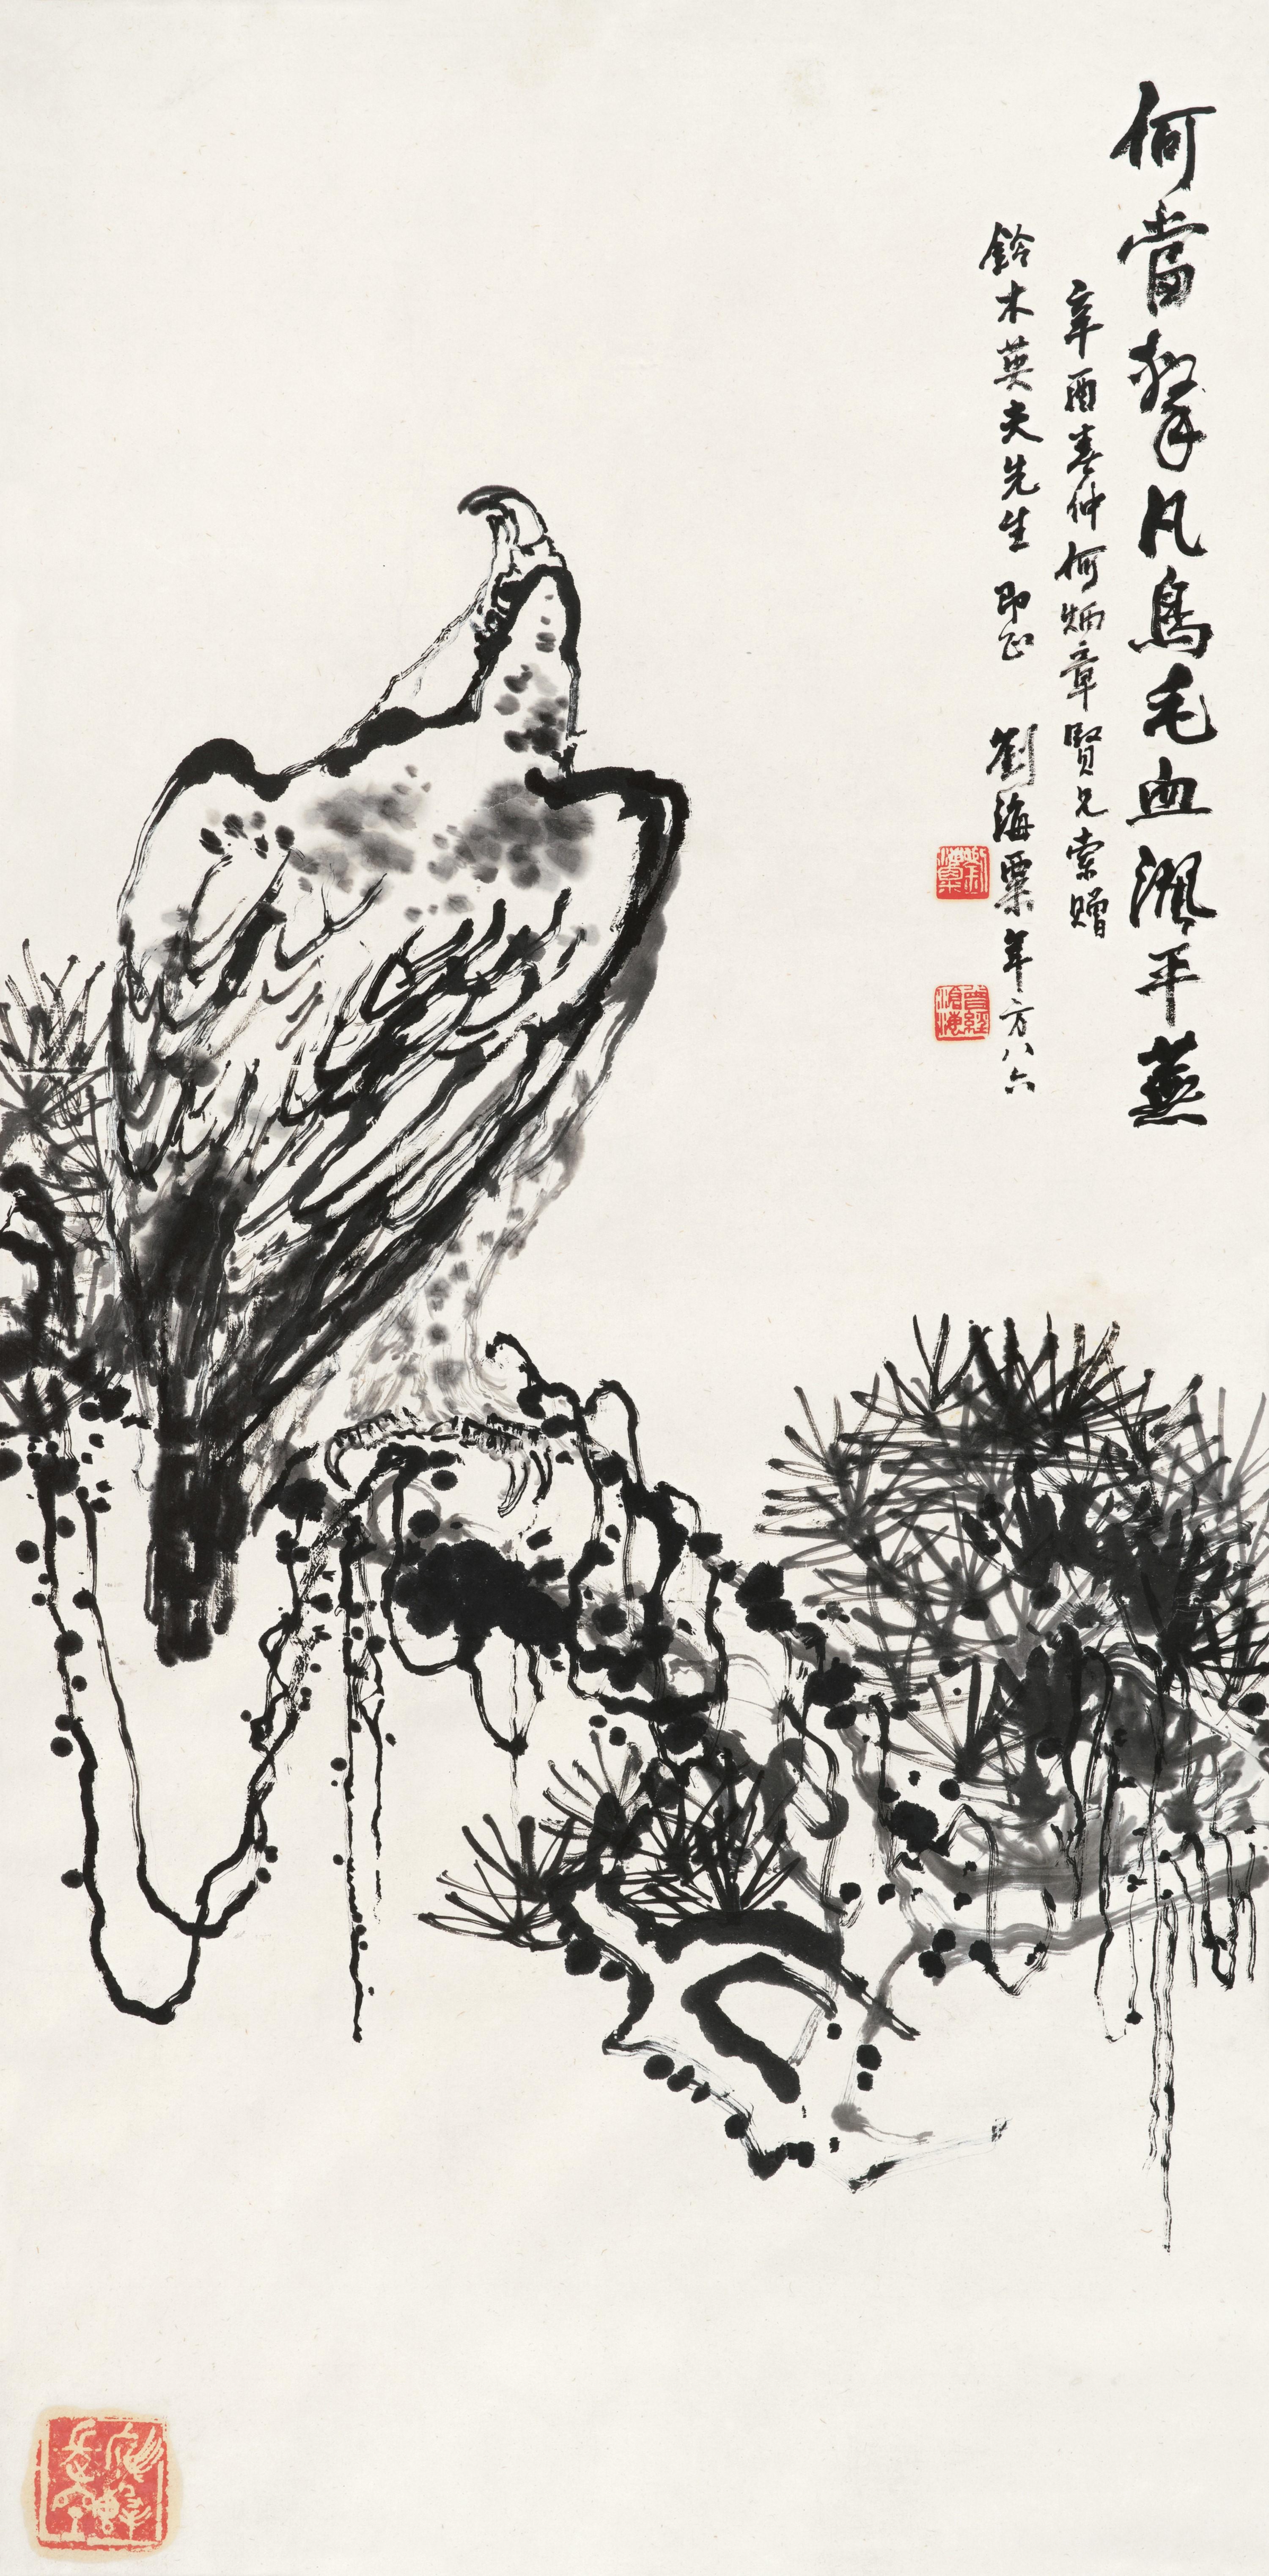 何當擊凡鳥毛血灑平蕪
辛酉春仲何炳章賢兄索贈
鈴木英夫先生 即正 劉海粟年方八六
劉海粟
曾經滄海